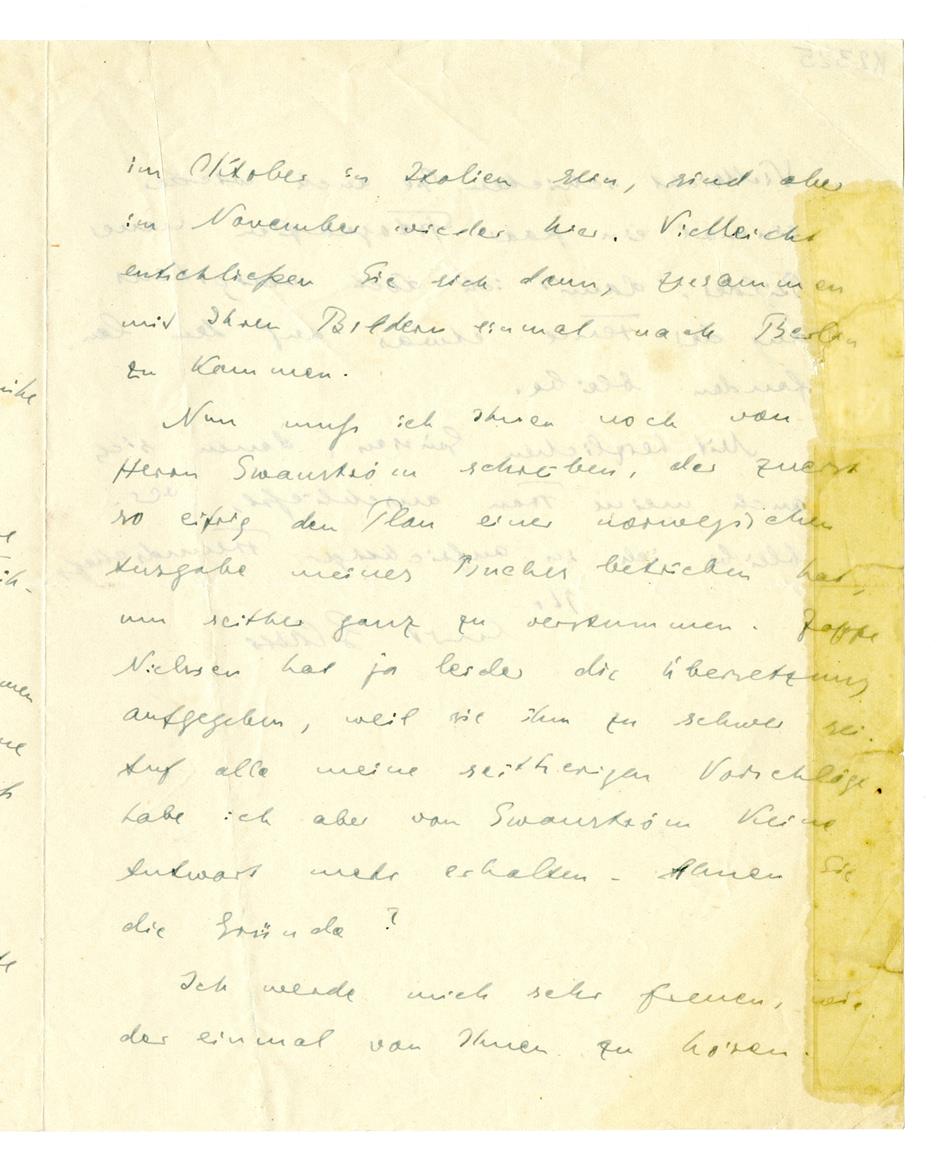 im Oktober in Italien sein, sind aber
im November wieder hier. Vielleicht
entschließen Sie sich dann, zusammen
mit Ihren Bildern einmal nach Berlin
zu kommen.
Nun muß ich Ihnen noch von
Herrn Swanström schreiben, der zuerst
so eifrig den Plan einer norwegischen
Ausgabe meines Buches betrieben hat,
um seither ganz zu verstummen. Jappe
Nielssen hat ja leider die Übersetzung
aufgegeben, weil sie ihm zu schwer sei.
Auf alle meine seitherigen Vorschläge
habe ich aber von Swanström keine
Antwort mehr erhalten. Ahnen Sie
die Gründe?
Ich werde mich sehr freuen, wie
der einmal von Ihnen zu hören.